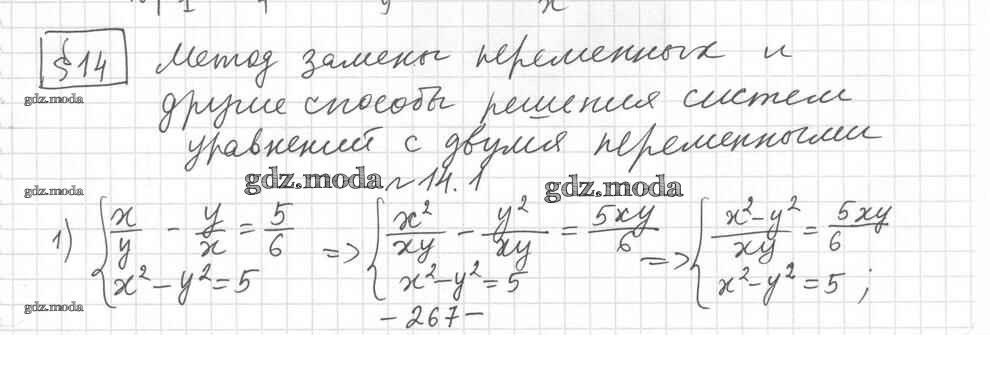 §14 Метод замены переменных и
gdz.moda другие способы решения систем
уравнений с двумя переменными
gdz.moda gdz.moda №14.1 gdz.moda
1) { x/y - y/x = 5/6 => { x²/xy - y²/xy = 5xy/6 => { x²-y²/xy = 5xy/6
x² - y² = 5 x²-y² = 5 x²-y² = 5 ;
gdz.moda - 267 -